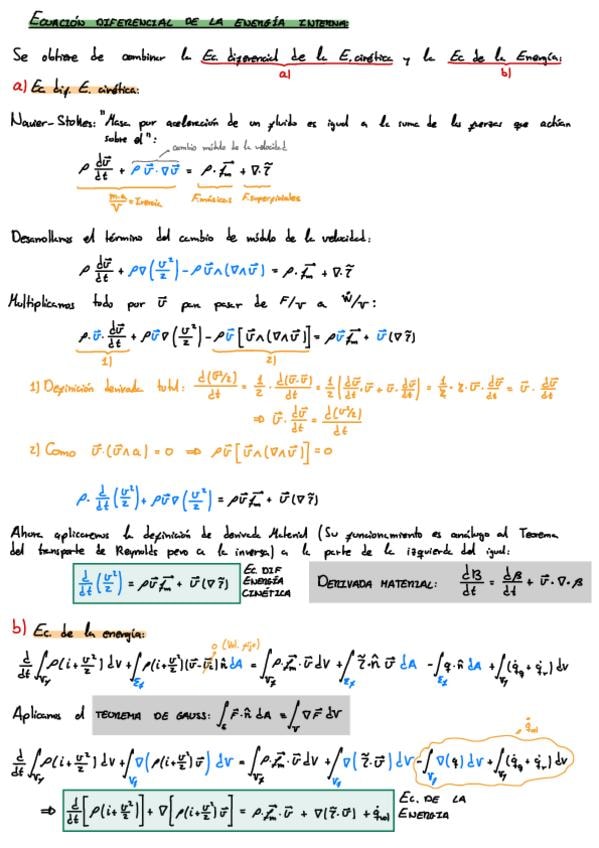 ECUACIÓN DIFERENCIAL DE LA ENERGÍA INTERNA:
Se obtiene de combinar la Ec. diferencial de la E. cinética y la Ec de la Energía:
a) b)
a) Ec. dif. E. cinética:
Navier-Stokes: "Masa por aceleración de un fluido es igual a la suma de las fuerzas que actúan
sobre el":
cambio módulo de la velocidad
ρ dv⃗/dt + ρ v⃗·∇v⃗ = ρ·f⃗m + ∇·τ̃
m·a/V = Inercia F. másicas F. superficiales
Desarrollamos el término del cambio de módulo de la velocidad:
ρ dv⃗/dt + ρ∇(v²/2) - ρv⃗∧(∇∧v⃗) = ρ·f⃗m + ∇·τ̃
Multiplicamos todo por v⃗ para pasar de F/V a Ẇ/V:
ρ·v⃗·dv⃗/dt + ρv⃗∇(v²/2) - ρv⃗[v⃗∧(∇∧v⃗)] = ρv⃗f⃗m + v⃗(∇τ̃)
1) 2)
1) Definición derivada total: d(v²/2)/dt = 1/2 · d(v⃗·v⃗)/dt = 1/2(dv⃗/dt·v⃗ + v⃗·dv⃗/dt) = 1/2·2·v⃗·dv⃗/dt = v⃗·dv⃗/dt
⇒ v⃗·dv⃗/dt = d(v²/2)/dt
2) Como v⃗·(v⃗∧a) = 0 ⇒ ρv⃗[v⃗∧(∇∧v⃗)] = 0
ρ·d/dt(v²/2) + ρv⃗∇(v²/2) = ρv⃗f⃗m + v⃗(∇τ̃)
Ahora aplicaremos la definición de derivada Material (Su funcionamiento es análogo al Teorema
del transporte de Reynolds pero a la inversa) a la parte de la izquierda del igual:
d/dt(v²/2) = ρv⃗f⃗m + v⃗(∇τ̃) EC. DIF ENERGÍA CINÉTICA
DERIVADA MATERIAL: dβ/dt = dβ/dt + v⃗·∇·β
b) Ec. de la energía:
0 (Vol. fijo)
d/dt ∫Vf ρ(i+v²/2) dV + ∫Σf ρ(i+v²/2)(v⃗-v⃗c)n̂ dA = ∫Vf ρ·f⃗m·v⃗ dV + ∫Σf τ̃·n̂ v⃗ dA - ∫Σf q·n̂ dA + ∫Vf (q̇q+q̇r) dV
Aplicamos el TEOREMA DE GAUSS: ∫Σ F⃗·n̂ dA = ∫V ∇F⃗ dV
q̇vol
d/dt ∫Vf ρ(i+v²/2) dV + ∫Vf ∇(ρ(i+v²/2)v⃗) dV = ∫Vf ρ·f⃗m·v⃗ dV + ∫Vf ∇(τ̃·v⃗) dV - ∫Vf ∇(q) dV + ∫Vf (q̇q+q̇r) dV
⇒ d/dt[ρ(i+v²/2)] + ∇[ρ(i+v²/2)v⃗] = ρ·f⃗m·v⃗ + ∇(τ̃·v⃗) + q̇vol EC. DE LA ENERGIA